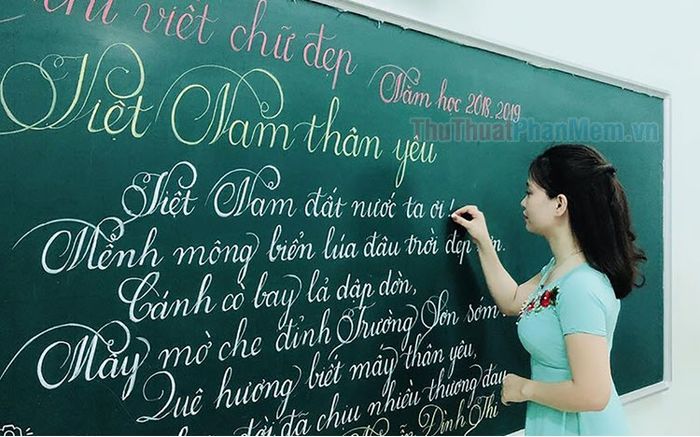 viết chữ đẹp
Năm học 2018-2019
ThuThuatPhanMem.vn
Việt Nam thân yêu
Việt Nam đất nước ta ơi!
Mênh mông biển lúa đâu trời đẹp hơn.
Cánh cò bay lả dập dờn,
Mây mờ che đỉnh Trường Sơn sớm
Quê hương biết mấy thân yêu,
đời đã chịu nhiều thương đau
Đình Thi